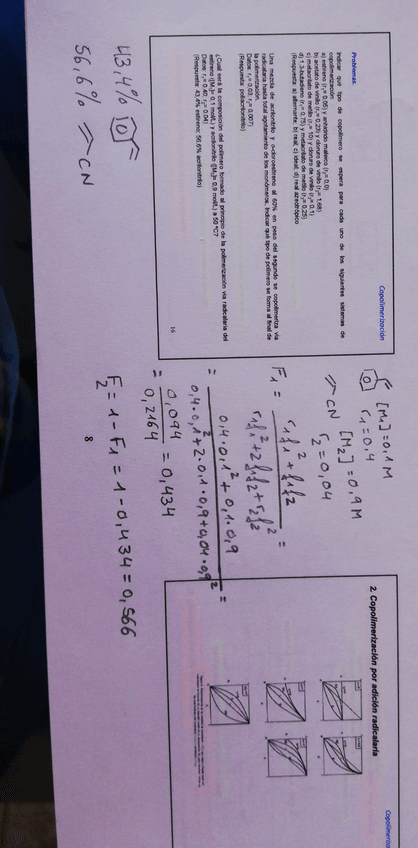 Copolimerización
Problemas
Indicar qué tipo de copolímero se espera para cada uno de los siguientes sistemas de
copolimerización:
a) estireno (r₁= 0,05) y anhídrido maleico (r₂= 0,0)
b) acetato de vinilo (r₁= 0,23) y cloruro de vinilo (r₂= 1,68)
c) metacrilato de metilo (r₁= 10) y cloruro de vinilo (r₂= 0,1)
d) 1,3-butadieno (r₁= 0,75) y metacrilato de metilo (r₂= 0,25)
(Respuesta: a) alternante; b) real; c) ideal; d) real azeotrópico
Una mezcla de acrilonitrilo y o-cloroestireno al 60% en peso del segundo se copolimeriza vía
radicalaria hasta total agotamiento de los monómeros. Indicar qué tipo de polímero se forma al final de
la polimerización.
(Respuesta: poliacrilonitrilo)
¿Cuál será la composición del polímero formado al principio de la polimerización vía radicalaria del
estireno ([M₁]= 0,1 mol/L) y acrilonitrilo ([M₂]= 0,9 mol/L) a 50 ºC?
Datos: r₁= 0,40; r₂= 0,04)
(Respuesta: 43,4% estireno; 56,6% acrilonitrilo)
16
43,4%
56,6% CN
[M₁]=0,1 M
r₁=0,4
CN [M₂]=0,9 M
r₂=0,04
F₁ = r₁f₁² + f₁f₂ / r₁f₁²+2f₁f₂+r₂f₂² =
= 0,4·0,1² + 0,1·0,9 / 0,4·0,1²+2·0,1·0,9+0,04·0,9² =
= 0,094 / 0,2164 = 0,434
F₂ = 1 - F₁ = 1 - 0,434 = 0,566
8
2. Copolimerización por adición radicalaria